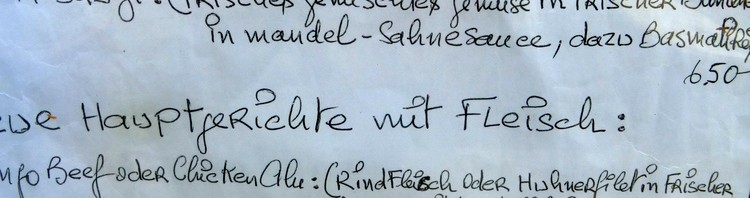 gemischtes Gemüse in frischer
in mandel-Sahnesauce, dazu Basmatire
6,50
Hauptgerichte mit Fleisch:
Beef oder Chicken Alu: (Rindfleisch oder Huhnerfilet in Frischer